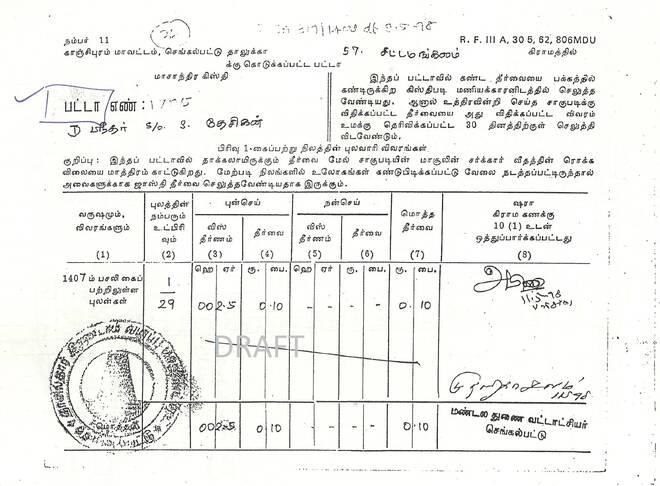 நம்பர் 11
R. F. III A, 30 5, 62, 806MDU
காஞ்சிபுரம் மாவட்டம், செங்கல்பட்டு தாலுக்கா 57. கிராமத்தில்
க்கு கொடுக்கப்பட்ட பட்டா
மாசாந்திர கிஸ்தி
பட்டா எண்:
S/o. தேசிகன்
இந்தப் பட்டாவில் கண்ட தீர்வையை பக்கத்தில்
கண்டிருக்கிற கிஸ்திபடி மணியக்காரனிடத்தில் செலுத்த
வேண்டியது. ஆனால் உத்திரவின்றி செய்த சாகுபடிக்கு
விதிக்கப்பட்ட தீர்வையை அது விதிக்கப்பட்ட விவரம்
உமக்கு தெரிவிக்கப்பட்ட 30 தினத்திற்குள் செலுத்தி
விடவேண்டும்.
பிரிவு 1-கைப்பற்று நிலத்தின் புலவாரி விவரங்கள்.
குறிப்பு : இந்தப் பட்டாவில் தாக்கலாயிருக்கும் தீர்வை மேல் சாகுபடியின் மாசூலின் சர்க்கார் வீதத்தின் ரொக்க
விலையை மாத்திரம் காட்டுகிறது. மேற்படி நிலங்களில் உலோகங்கள் கண்டுபிடிக்கப்பட்டு வேலை நடத்தப்பட்டிருந்தால்
அவைகளுக்காக ஜாஸ்தி தீர்வை செலுத்தவேண்டியதாக இருக்கும்.
வருஷமும், விவரங்களும் (1)
புலத்தின் நம்பரும் உட்பிரி வும் (2)
புன்செய்
விஸ் தீர்ணம் (3)
தீர்வை (4)
நன்செய்
விஸ் தீர்ணம் (5)
தீர்வை (6)
மொத்த தீர்வை (7)
ஷரா
கிராம கணக்கு
10 (1) உடன்
ஒத்துப்பார்க்கப்பட்டது
(8)
ஹெ ஏர் ரூ. பை. ஹெ ஏர் ரூ. பை. ரூ. பை.
1407ம் பசலி கைப்
பற்றிலுள்ள
புலன்கள்
1
29
00 2.5 0.10 - - - - 0.10
11.5-98
DRAFT
00 2.5 0.10 - - - - 0.10
மண்டல துணை வட்டாட்சியர்
செங்கல்பட்டு